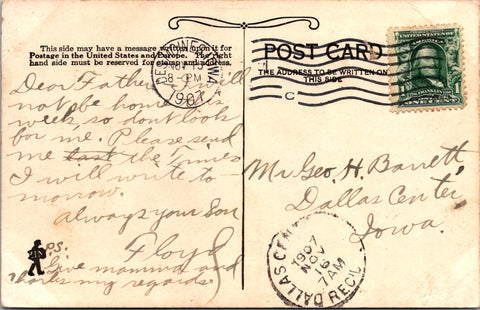 This side may have a message written upon it for
Postage in the United States and Europe. The right
hand side must be reserved for stamp and address.
Dear Father I will
not be home this
week so dont look
for me. Please send
me last the times
I will write to-
morrow.
Always your Son
Floyd
P.S.
Give mamma and
Charles my regards.
NOV 15
8-PM
1907
IOWA
POST CARD
THE ADDRESS TO BE WRITTEN ON
THIS SIDE
C
UNITED STATES OF AMERICA
FRANKLIN
1
ONE CENT
Mr Geo. H. Barrett
Dallas Center
Iowa.
DALLAS CEN
1907
NOV
16
7AM
REC'D